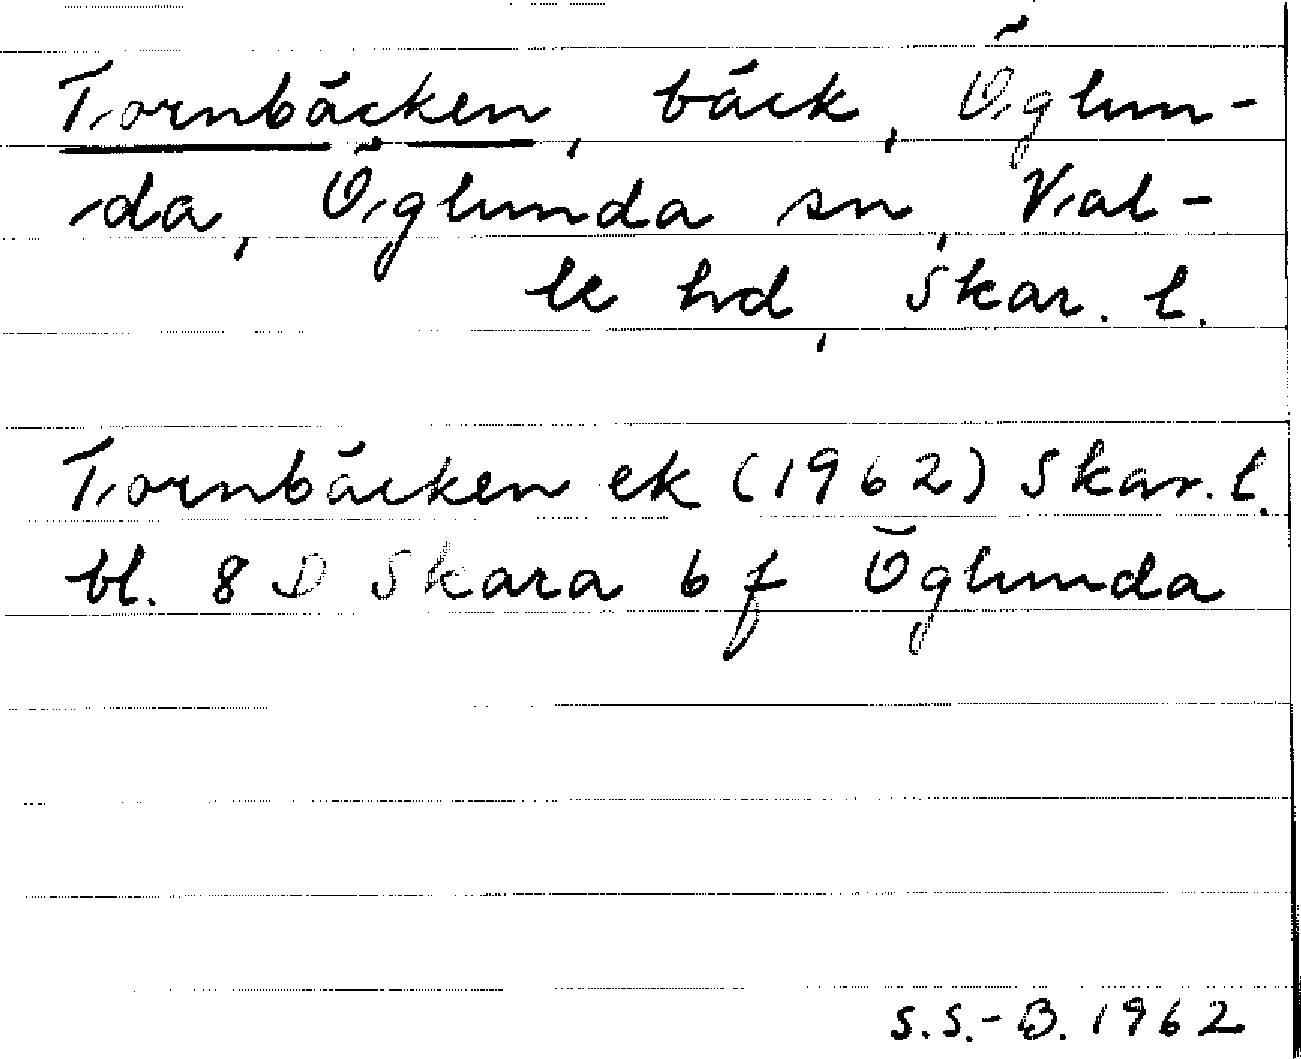 Tornbäcken, bäck, Öglun-
da, Öglunda sn, Val-
le hd, Skar. l.
Tornbäcken ek (1962) Skar. l.
bl. 8 D Skara 6 f Öglunda
S.S.-B. 1962